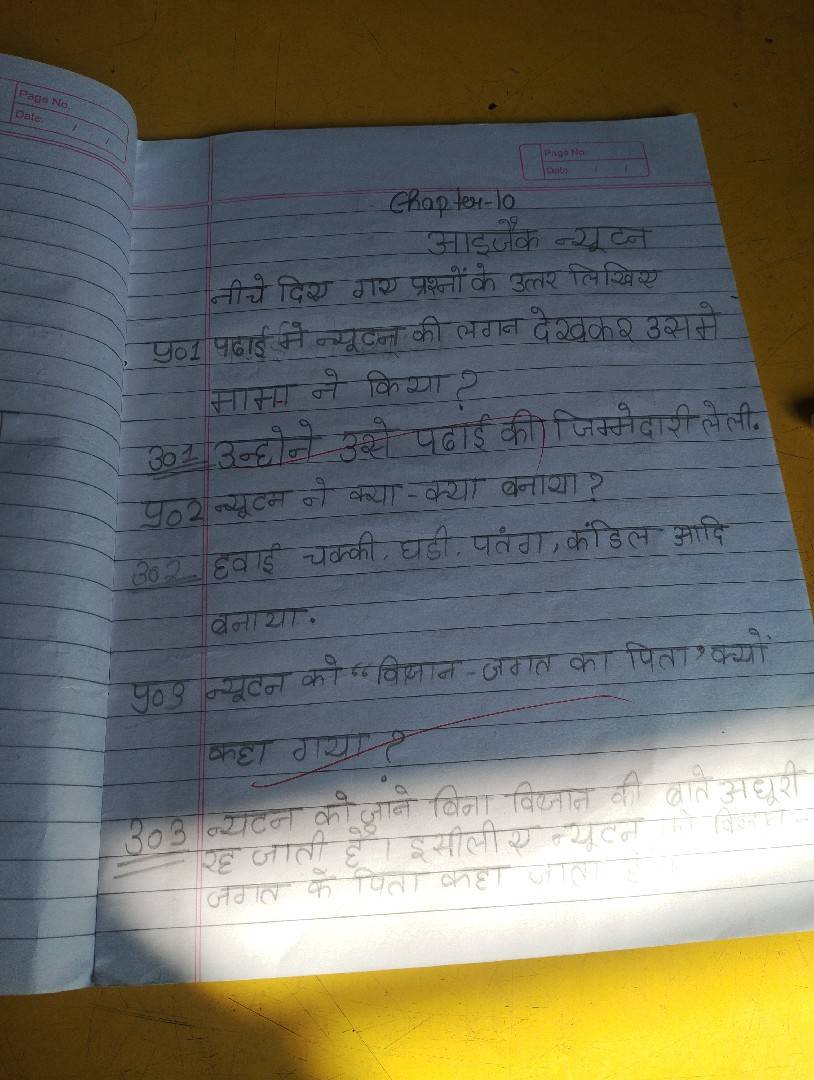 Page No.
Date / /
Page No.
Date / /
Chapter-10
आइजैक न्यूटन
नीचे दिए गए प्रश्नों के उत्तर लिखिए
प्र०1 पढाई मे न्यूटन की लगन देखकर उसमे
मामा ने किया ?
उ०1 उन्होने उसे पढाई की जिम्मेदारी लेली.
प्र०2 न्यूटन ने क्या - क्या बनाया ?
उ०2 हवाई चक्की, घडी, पतंग, कंडिल आदि
बनाया.
प्र०3 न्यूटन को "विज्ञान - जगत का पिता" क्यों
कहा गया ?
उ०3 न्यटन को जाने बिना विज्ञान की बाते अधूरी
रह जाती है। इसीलीए न्यूटन को विज्ञान -
जगत के पिता कहा जाता है